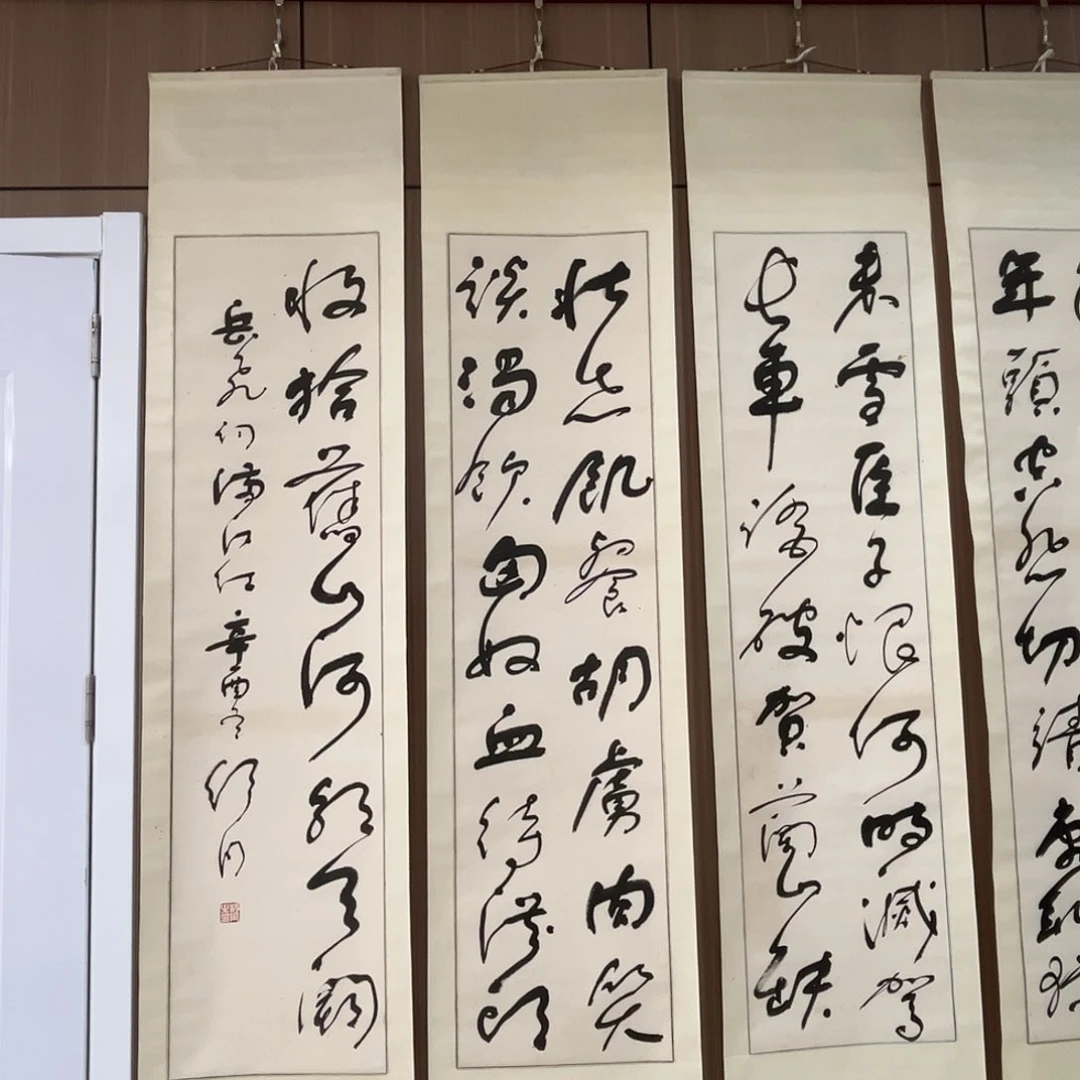 年頭空悲切靖康恥猶
未雪臣子恨何時滅駕
長車踏破賀蘭山缺
壯志飢餐胡虜肉笑
談渴飲匈奴血待從頭
收拾舊山河朝天闕
岳飛詞滿江紅辛酉冬舒同